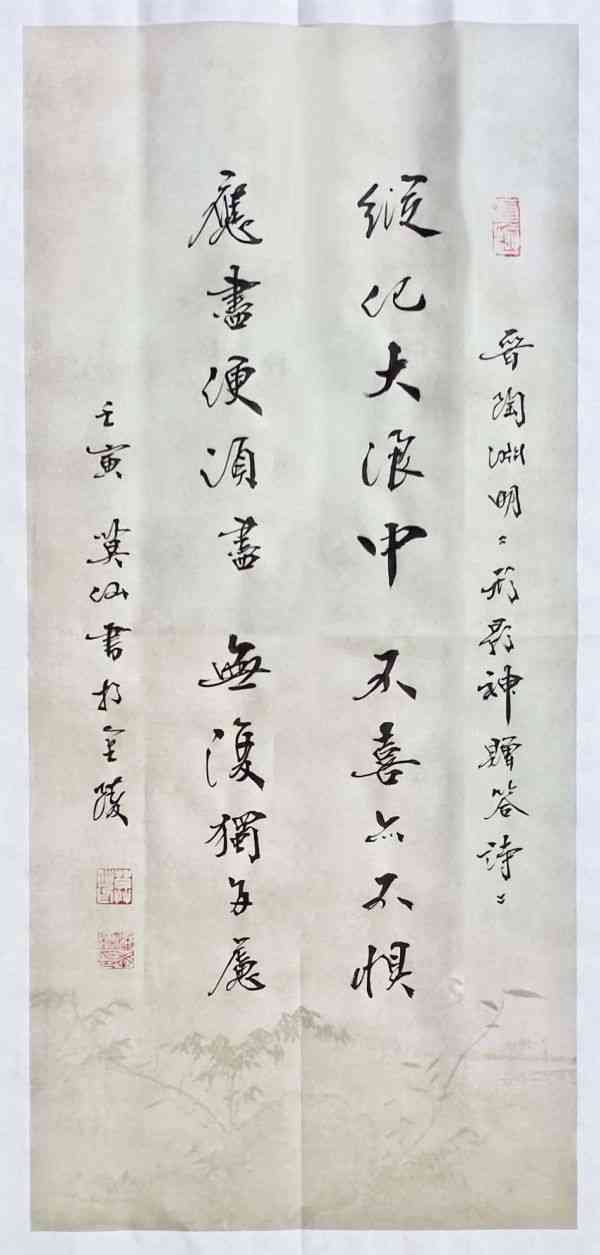 晉陶淵明《形影神贈答詩》
縱化大浪中 不喜亦不惧
應盡便須盡 無復獨多慮
壬寅 莫仙書於金陵